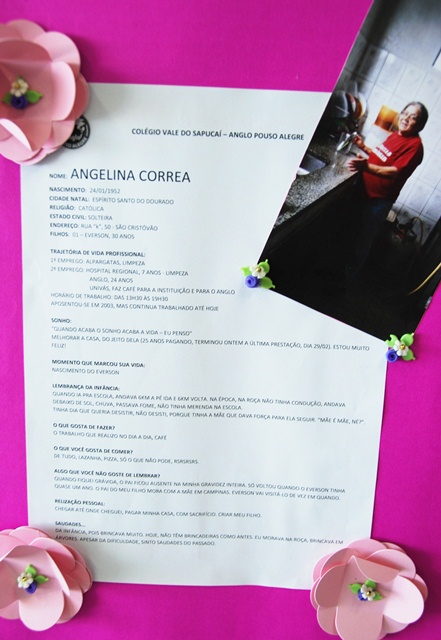 COLÉGIO VALE DO SAPUCAÍ – ANGLO POUSO ALEGRE
NOME: ANGELINA CORREA
NASCIMENTO: 24/01/1952
CIDADE NATAL: ESPÍRITO SANTO DO DOURADO
RELIGIÃO: CATÓLICA
ESTADO CIVIL: SOLTEIRA
ENDEREÇO: RUA "K", 50 - SÃO CRISTÓVÃO
FILHOS: 01 – EVERSON, 30 ANOS
TRAJETÓRIA DE VIDA PROFISSIONAL:
1º EMPREGO: ALPARGATAS, LIMPEZA
2º EMPREGO: HOSPITAL REGIONAL, 7 ANOS - LIMPEZA
ANGLO, 24 ANOS
UNIVÁS, FAZ CAFÉ PARA A INSTITUIÇÃO E PARA O ANGLO
HORÁRIO DE TRABALHO: DAS 13H30 ÀS 19H30
APOSENTOU-SE EM 2003, MAS CONTINUA TRABALHADO ATÉ HOJE
SONHO:
"QUANDO ACABA O SONHO ACABA A VIDA – EU PENSO"
MELHORAR A CASA, DO JEITO DELA (25 ANOS PAGANDO, TERMINOU ONTEM A ÚLTIMA PRESTAÇÃO, DIA 29/02). ESTOU MUITO
FELIZ!
MOMENTO QUE MARCOU SUA VIDA:
NASCIMENTO DO EVERSON
LEMBRANÇA DA INFÂNCIA:
QUANDO IA PRA ESCOLA, ANDAVA 6KM A PÉ IDA E 6KM VOLTA. NA ÉPOCA, NA ROÇA NÃO TINHA CONDUÇÃO, ANDAVA
DEBAIXO DE SOL, CHUVA, PASSAVA FOME, NÃO TINHA MERENDA NA ESCOLA.
TINHA DIA QUE QUERIA DESISTIR, NÃO DESISTI, PORQUE TINHA A MÃE QUE DAVA FORÇA PARA ELA SEGUIR. "MÃE É MÃE, NÉ?"
O QUE GOSTA DE FAZER?
O TRABALHO QUE REALIZO NO DIA A DIA, CAFÉ
O QUE VOCÊ GOSTA DE COMER?
DE TUDO, LAZANHA, PIZZA, SÓ O QUE NÃO PODE, RSRSRSRS.
ALGO QUE VOCÊ NÃO GOSTE DE LEMBRAR?
QUANDO FIQUEI GRÁVIDA, O PAI FICOU AUSENTE NA MINHA GRAVIDEZ INTEIRA. SÓ VOLTOU QUANDO O EVERSON TINHA
QUASE UM ANO. O PAI DO MEU FILHO MORA COM A MÃE EM CAMPINAS. EVERSON VAI VISITÁ-LO DE VEZ EM QUANDO.
RELIZAÇÃO PESSOAL:
CHEGAR ATÉ ONDE CHEGUEI, PAGAR MINHA CASA, COM SACRIFÍCIO. CRIAR MEU FILHO.
SAUDADES...
DA INFÂNCIA, POIS BRINCAVA MUITO. HOJE, NÃO TÊM BRINCADEIRAS COMO ANTES. EU MORAVA NA ROÇA, BRINCAVA EM
ÁRVORES. APESAR DA DIFICULDADE, SINTO SAUDADES DO PASSADO.